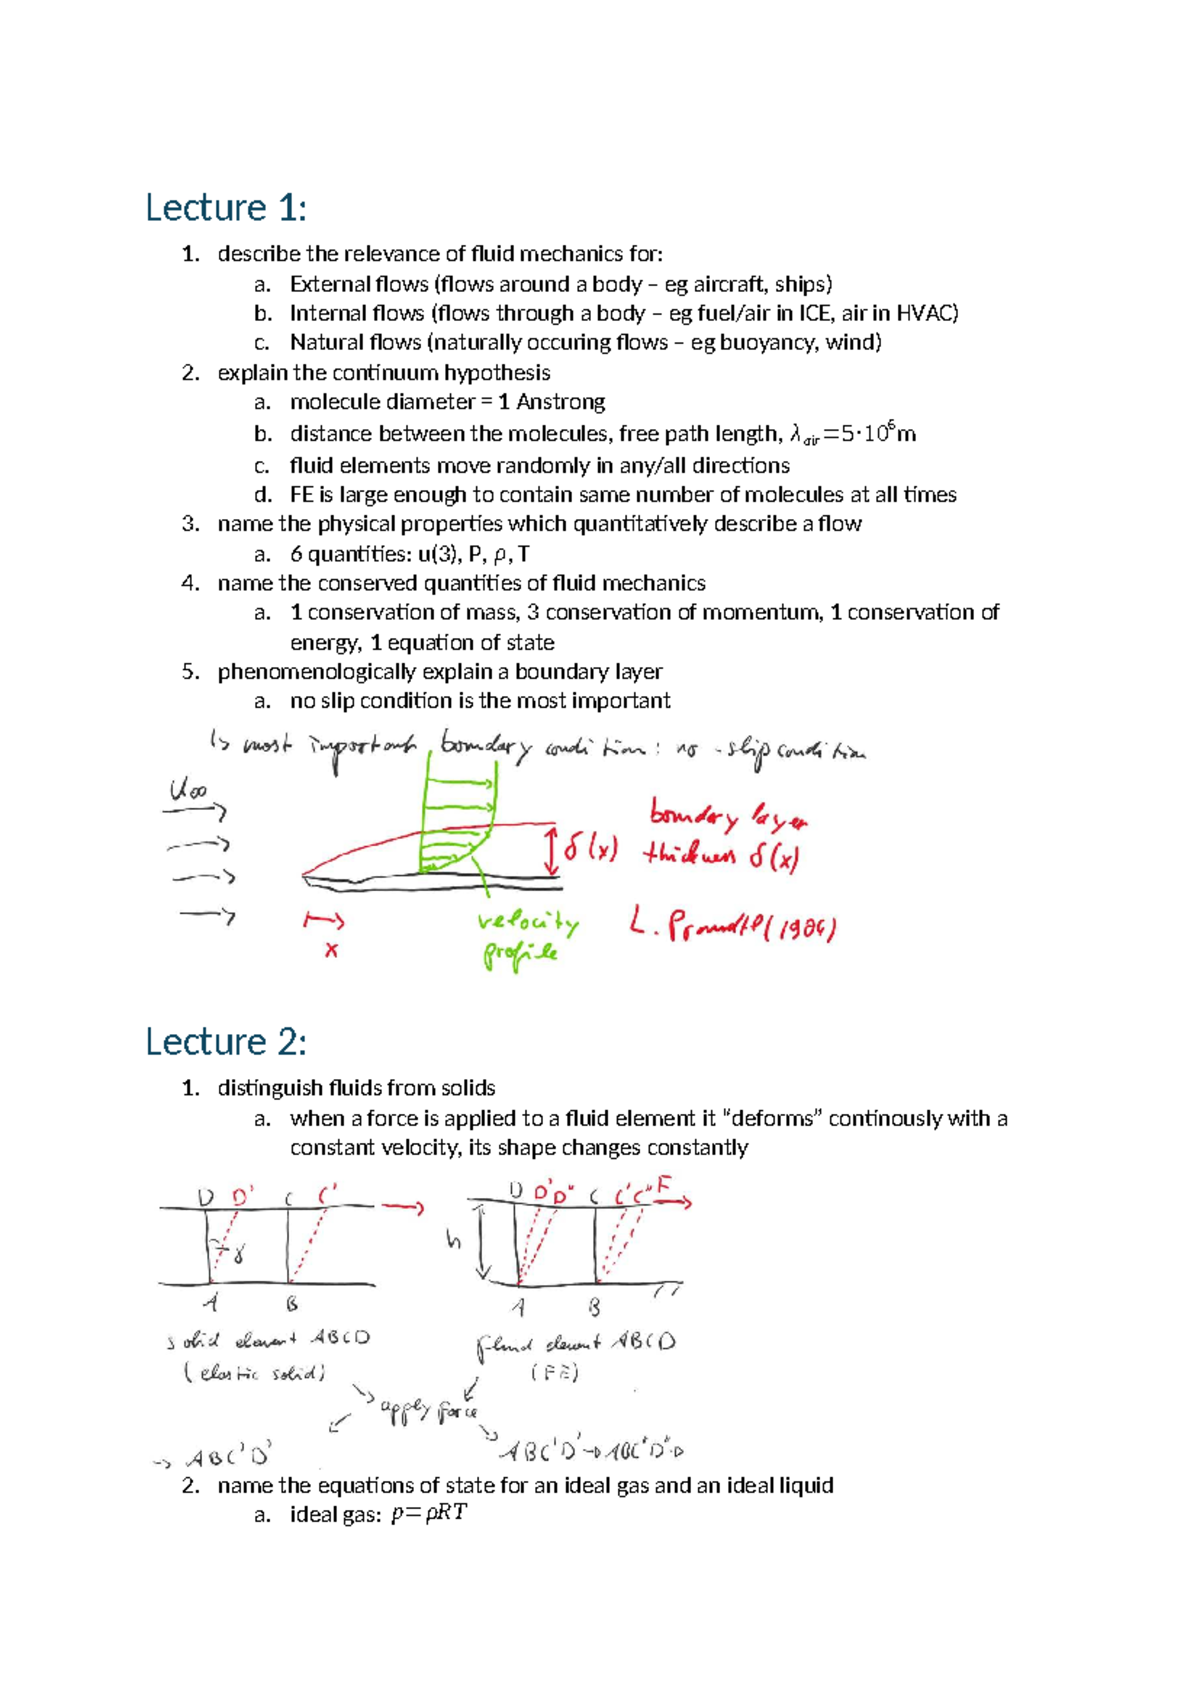 Lecture 1:
1. describe the relevance of fluid mechanics for:
a. External flows (flows around a body – eg aircraft, ships)
b. Internal flows (flows through a body – eg fuel/air in ICE, air in HVAC)
c. Natural flows (naturally occuring flows – eg buoyancy, wind)
2. explain the continuum hypothesis
a. molecule diameter = 1 Anstrong
b. distance between the molecules, free path length, λair=5·10⁶m
c. fluid elements move randomly in any/all directions
d. FE is large enough to contain same number of molecules at all times
3. name the physical properties which quantitatively describe a flow
a. 6 quantities: u(3), P, ρ, T
4. name the conserved quantities of fluid mechanics
a. 1 conservation of mass, 3 conservation of momentum, 1 conservation of
energy, 1 equation of state
5. phenomenologically explain a boundary layer
a. no slip condition is the most important
↳ most important boundary condition: no-slip condition
U∞
boundary layer
δ(x) thickness δ(x)
x
velocity
profile
L. Prandtl (1904)
Lecture 2:
1. distinguish fluids from solids
a. when a force is applied to a fluid element it “deforms” continously with a
constant velocity, its shape changes constantly
D D' C C'
D D' D" C C' C" F
γ
h
A B
A B
solid element ABCD
(elastic solid)
fluid element ABCD
(FE)
apply force
→ ABC'D'
ABC'D' → ABC"D" →
2. name the equations of state for an ideal gas and an ideal liquid
a. ideal gas: p=ρRT